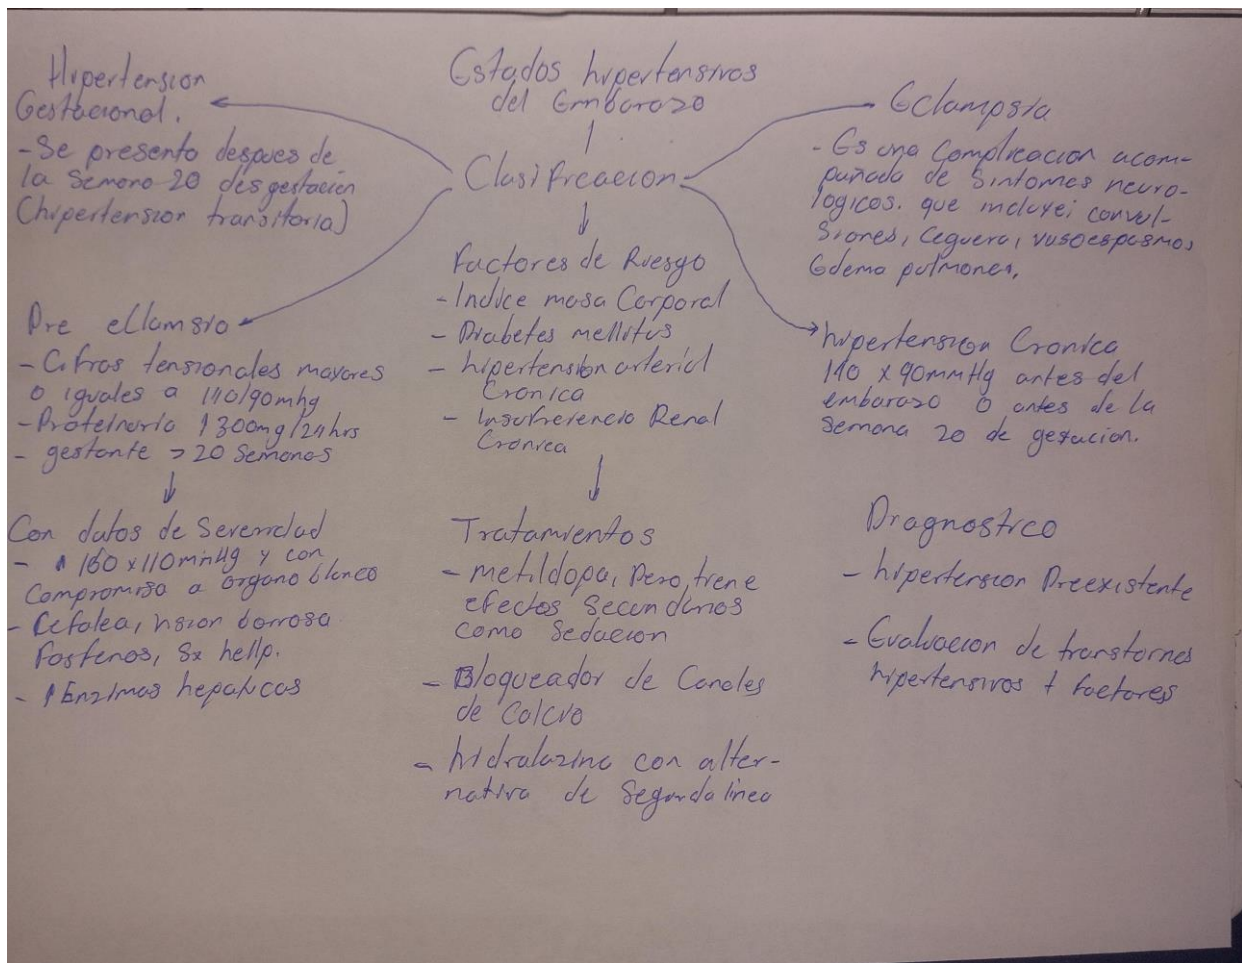 Estados hipertensivos
del Embarazo
Clasificacion
Hipertension
Gestacional.
- Se presento despues de
la Semana 20 des gestacion
(hipertension transitoria)
Pre ellamsia
- Cifras tensionales mayores
o iguales a 140/90mhg
- Proteinuria ↑300mg/24hrs
- gestante > 20 Semanas
Con datos de Severidad
- ↑ 160 x 110 mmHg y con
compromiso a organo blanco
- Cefalea, vision borrosa
Fosfenos, Sx hellp.
- ↑ Enzimas hepaticas
Factores de Riesgo
- Indice masa Corporal
- Diabetes mellitus
- hipertension arterial
Cronica
- Insuficiencia Renal
Cronica
Tratamientos
- metildopa, Pero, tiene
efectos Secundarios
como Sedacion
- Bloqueador de Canales
de Calcio
- hidralazina con alter-
nativa de Segunda linea
Eclampsia
- Es una Complicacion acom-
pañada de Sintomas neuro-
logicos. que incluyei convul-
siones, Ceguera, vasoespasmos
Edema pulmones.
hipertension Cronica
140 x 90mmHg antes del
embarazo o antes de la
Semana 20 de gestacion.
Diagnostico
- hipertension Preexistente
- Evaluacion de transtornes
hipertensivos + factores